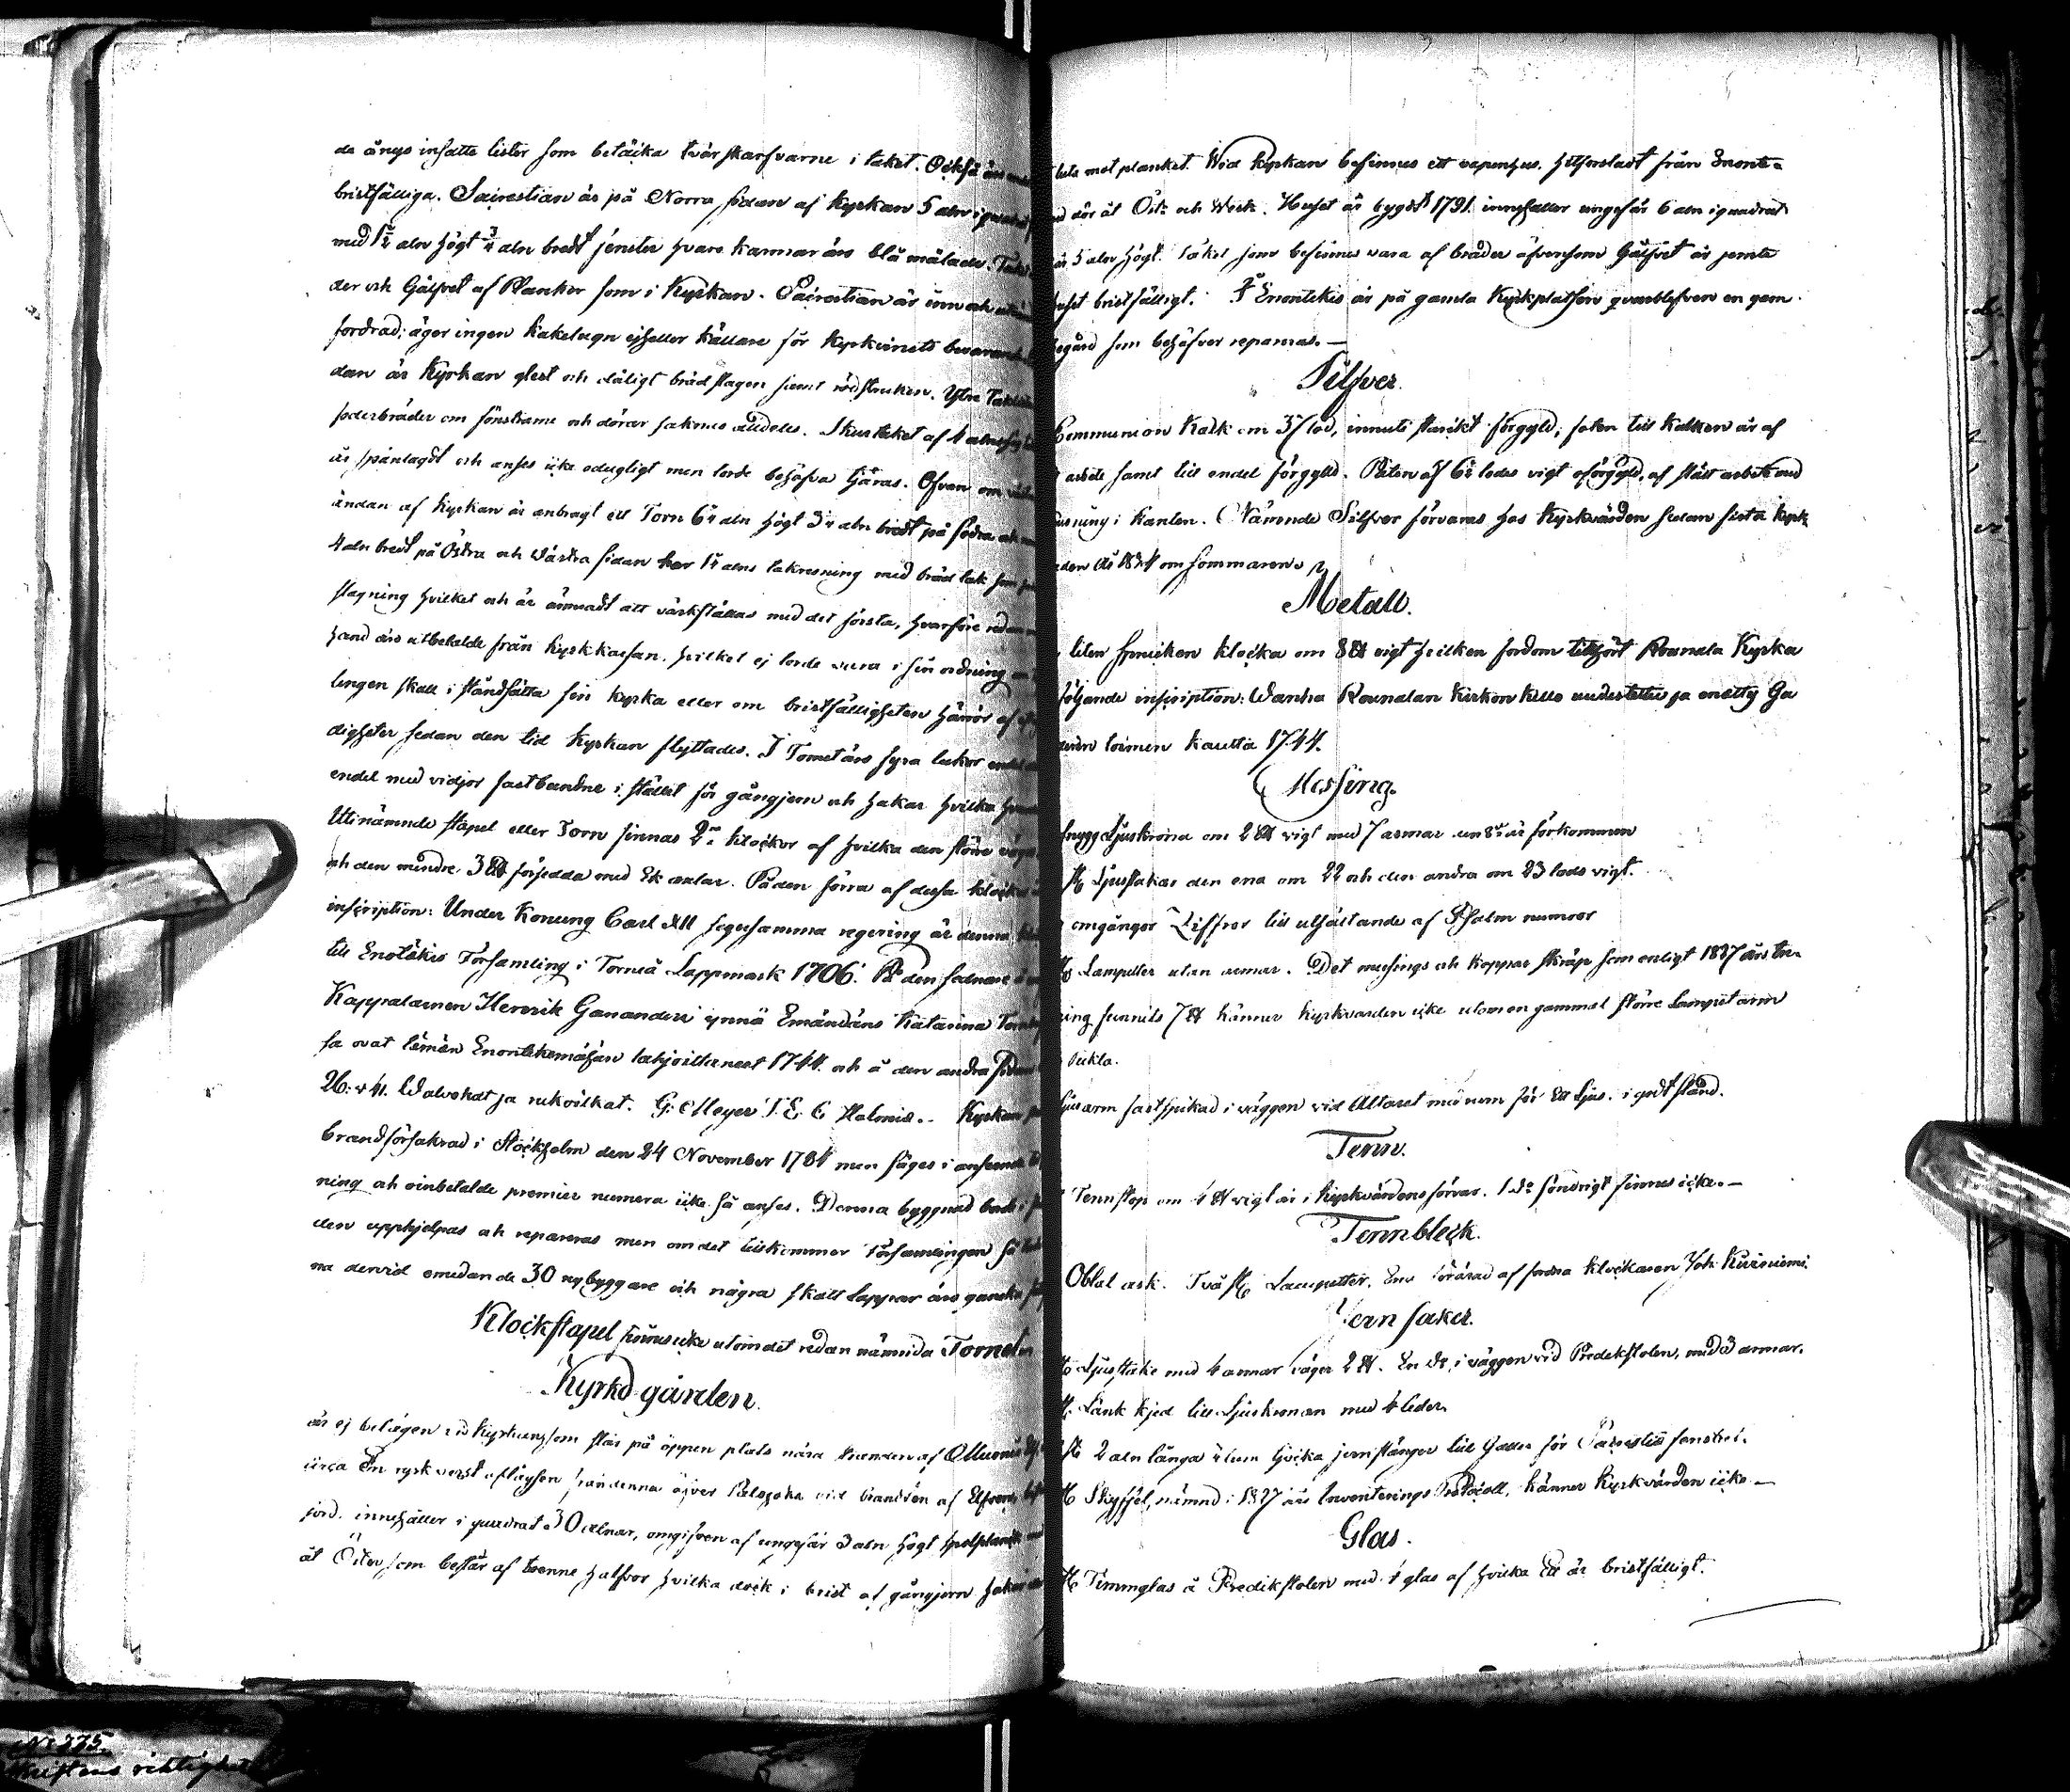 de ångs insatte lister som betäcka tvärskarfvarne i taket. Också äro
bristfälliga. Sacrestian är på Norra sidan af Kyrkan 5 aln i
med 1½ aln högt ¾ aln bredt fenster hvars karmar äro blå målade. Taket
der och Gålfvet af Plankor som i Kyrkan. Sacrestian är inn och
fordrad; äger ingen kakelugn ejheller källare för Kyrkvinets
dan är Kyrkan glest och dåligt brädslagen samt rödstruken. Yttre
foderbräder om fönstrarne och dörar saknas alldeles. Skurtaket af 4
är spånlagdt och anses icke odugligt men torde behöfva tjäras. Ofvan om
ändan af Kyrkan är anbragt ett Torn 6¼ aln högt 3¼ aln bredt på södra och
4 aln bredt på Östra och Wästra sidan har 1¼ alns takresning med bräd tak som
slagning hvilket och är ämnadt att värkställas med det första, hvarföre redan
hand äro utbetalde från Kyrkkassan, hvilket ej torde vara i sin ordning
lingen skall i ståndsätta sin kyrka eller om bristfälligheten härrör af
digheter sedan den tid Kyrkan flyttades. I Tornet äro fyra luckor endel
endel med vidjor fastbundne i stället för gångjern och hakar hvilka
Uti nämnde stapel eller Torn finnas 2ne klockor af hvilka den större
och den mindre 3 försedda med Ek axlar. På den förra af dessa klockor
inscription: Under Konung Carl XII segersamma regering är denna
till Enotekis Församling i Torneå Lappmark 1706. På den sednare
Kappalainen Henrik Ganander ynnä Emändäns Katarina
sa ovat tämän Enontekemäjän lahjoittaneet 1744. och å den andra sidan
26: v 41. Walvokat ja rukoilkat. G: Meyer I. E. C Holmiæ.. Kyrkan
brandförsäkrad i Stockholm den 24 November 1784 men säges i anseende
ning och oinbetalde premier numera icke så anses. Denna byggnad
den upphjelpas och repareras men om det tillkommer Församlingen så
na dervid emedan de 30 nybyggare och några skatt Lappar äro ganska
Klockstapel finnes icke utom det redan nämnda Tornet
Kyrkogården
är ej belägen vid Kyrkan som står på öppen plats nära stranden af Muonio
circa En rysk verst aflägsen från denna öfver Palojoki vid stranden af Elfven
jord. innehåller i quadrat 30 alnar, omgifven af ungefär 3 aln högt
åt Öster som består af tvenne halfvor hvilka dock i brist af gångjern
mot planket. Wid Kyrkan befinnes ett vapenhus, hitforslast från Enonte=
dör åt Öst: och West. Huset är bygdt 1791. innehaller ungefär 6 aln i quadrat
är 3 aln högt. Taket som befinnes vara af bräder äfvensom Gålfvet är jemte
huset bristfälligt. I Enontekis är på gamla Kyrkplatsen qvarblefven en gam
som behöfver repareras.—
Silfver.
Communion Kalk om 37 lod, innuti starkt förgyld; foten till Kalken är af
arbete samt till endel förgylld. Paten af 6½ lods vigt oförgyld, af slätt arbete med
i kanten. Nämnde Silfver förvaras hos Kyrkvärden sedan sista kyrk
1834 om sommaren.
Metall.
liten sprucken klocka om 8 vigt hvilken fordom tillhört Rounala Kyrka
följande inscription: Wanha Rounalan Kirkon Kello uudistettu ja enätty Ga
toimen kautta 1744.
Messing.
Ljuskrona om 2 vigt med 7 armar den 8de är förkommen
st Ljusstakar den ena om 22 och den andra om 23 lods vigt.
omgångor Ziffror till utsättande af Psalm numror
Lampetter utan armar. Det messings och koppar skräp som enligt 1837 års In=
funnits 7 känner kyrkvärden icke utom en gammal större Lampett arm
Ljusarm fastspikad i väggen vid Altaret med rum för ett ljus. i godt stånd.
Tenn.
Tennstop om 4 vigt är i kyrkvärdens förvar. 1 do söndrigt finnes icke.—
Tennbleck.
Oblat ask. Två st Lampetter. Ena förärad af fordna klockaren Joh. Kurvinimi.
Jern saker.
Ljusstake med 4 armar väger 2. En do i väggen vid Predikstolen, med 3 armar.
st. Länk kjed till Ljuskronan med 4 leder
st 2 aln långa ½ tum tjocka jernstänger till Galler för Sacresti fenstret.
st Skyffel, nämnd i 1827 års Inventerings Protocoll, känner Kyrkvärden icke—
Glas.
st Timmglas å Predikstolen med 4 glas af hvilka Ett är bristfälligt.
No 225.
riktighet